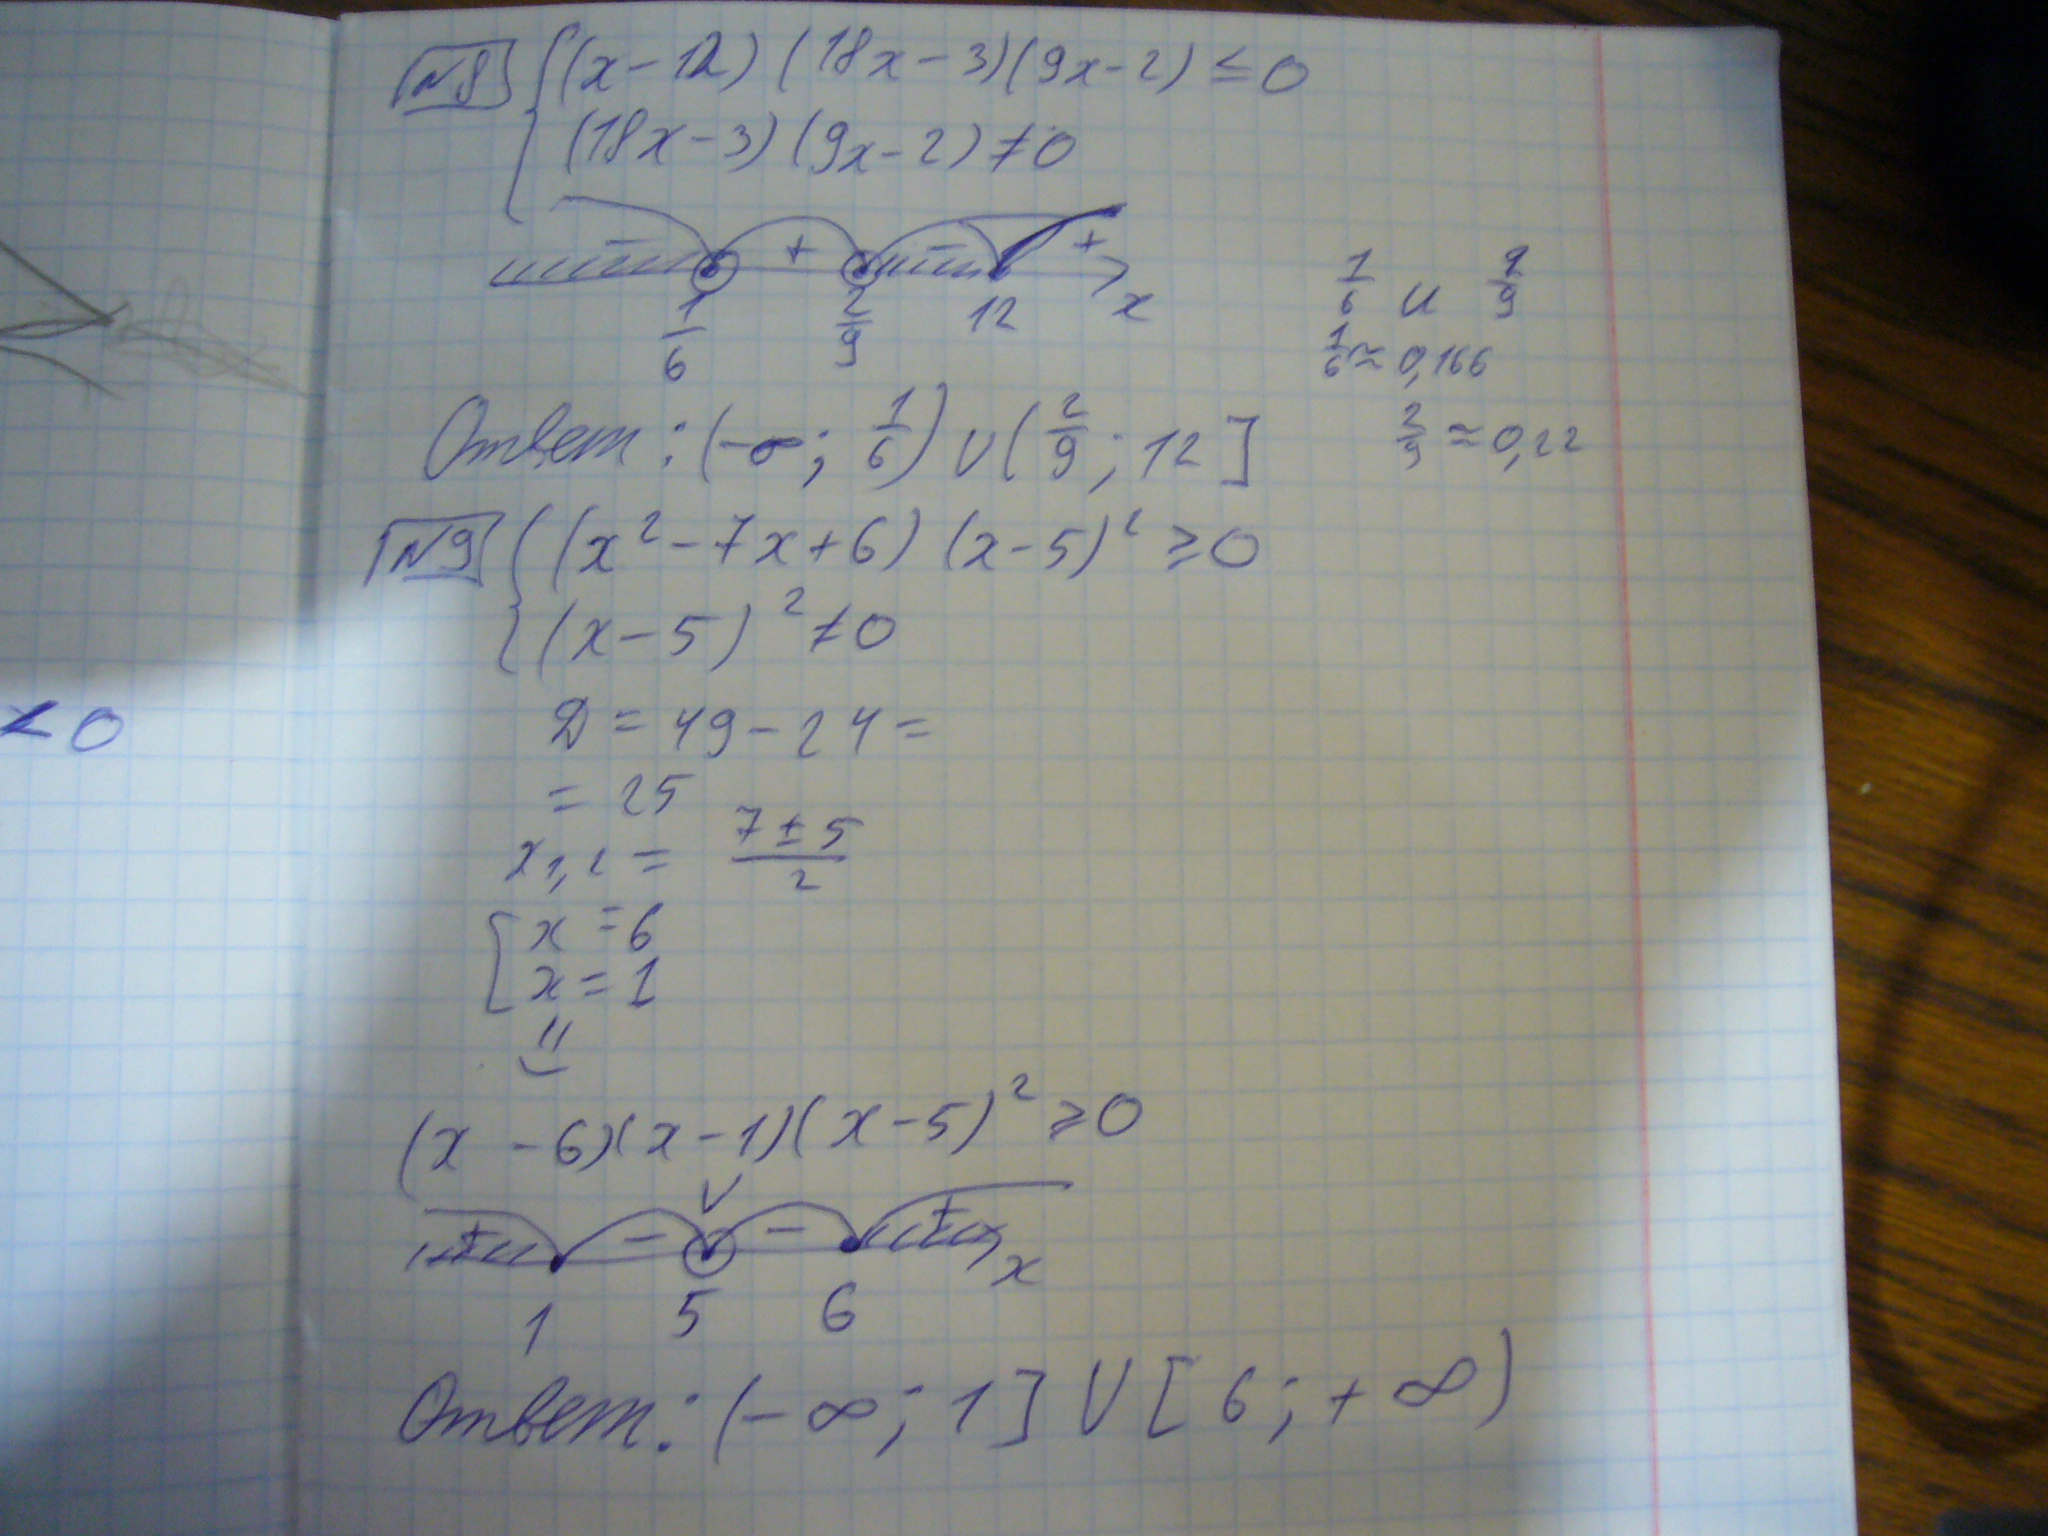 < 0
№8 { (x-12)(18x-3)(9x-2) ≤ 0
(18x-3)(9x-2) ≠ 0
- + - +
1/6 2/9 12 x
1/6 и 2/9
1/6 ≈ 0,166
2/9 ≈ 0,22
Ответ: (-∞; 1/6) ∪ (2/9; 12]
№9 { (x²-7x+6)(x-5)² ≥ 0
(x-5)² ≠ 0
D = 49-24 =
= 25
x1,2 = (7±5)/2
[ x = 6
x = 1
(x-6)(x-1)(x-5)² ≥ 0
V
+ - - +
1 5 6 x
Ответ: (-∞; 1] ∪ [6; +∞)